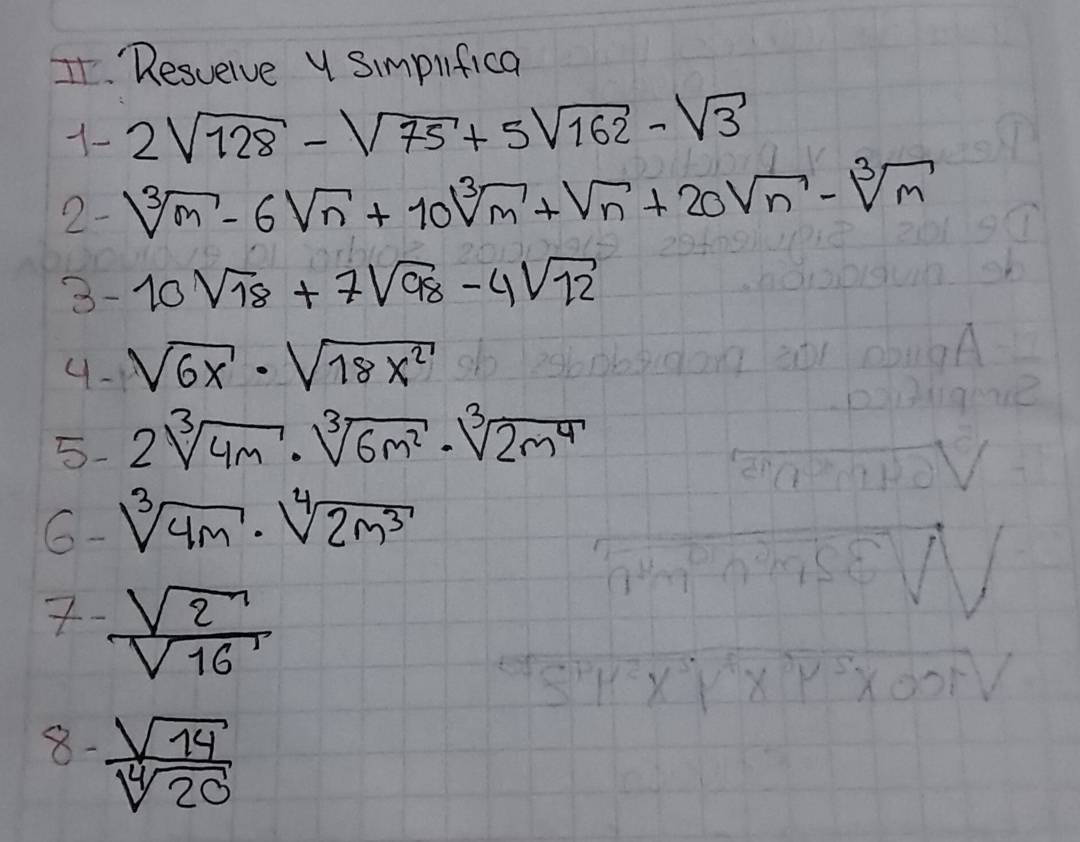 II. Resuelve y simplifica
1- 2√128 - √75 + 5√162 - √3
2- ∛m - 6√n + 10∛m + √n + 20√n - ∛m
3- 10√18 + 7√98 - 4√12
4- √6x · √18x²
5- 2∛4m · ∛6m² · ∛2m⁴
6- ∛4m · ∜2m³
7- √2 / √16
8- √14 / ∜20